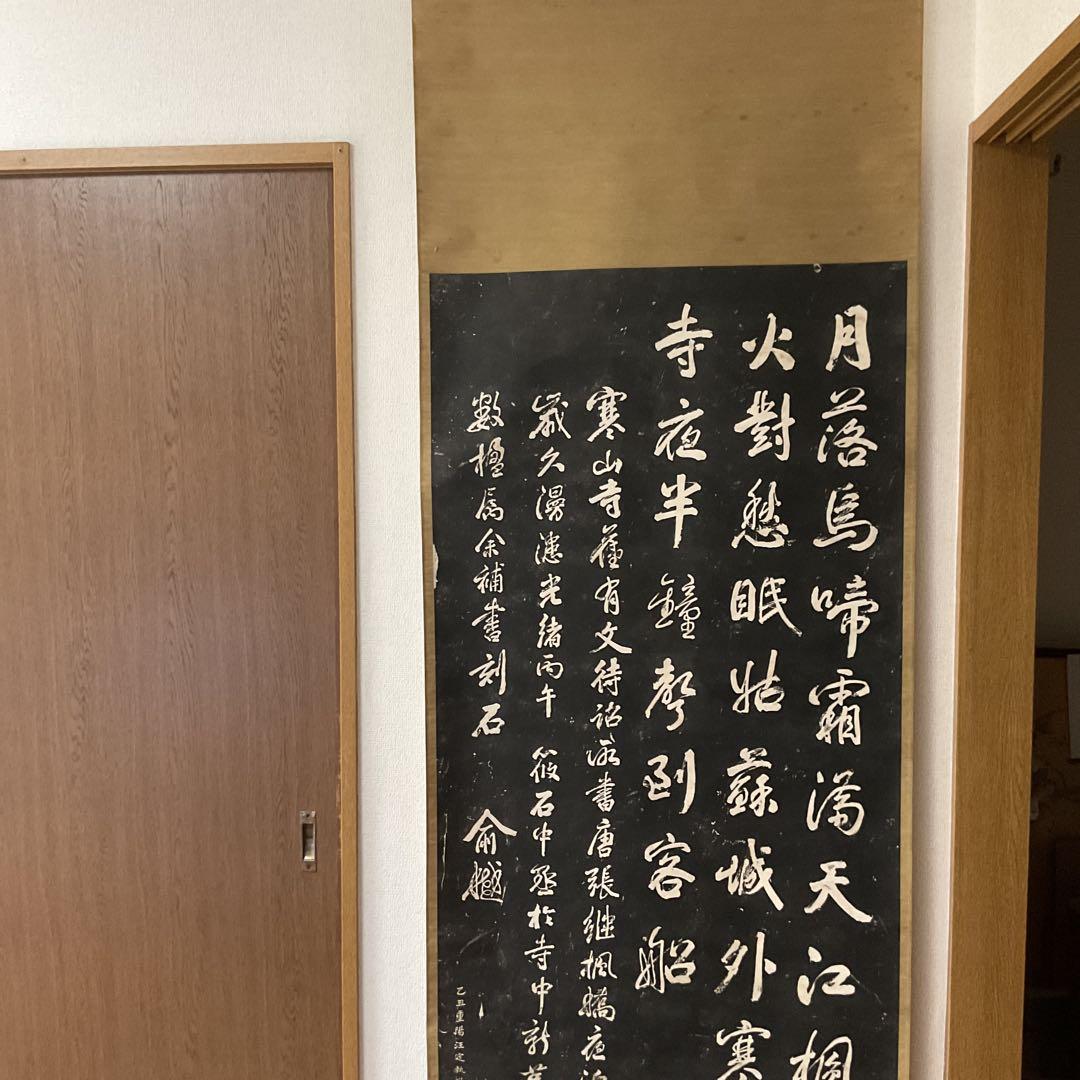 月落烏啼霜滿天江楓
火對愁眠姑蘇城外寒
寺夜半鐘聲到客船
寒山寺舊有文待詔所書唐張繼楓橋夜泊
歲久漫漶光緒丙午 筱石中丞於寺中新葺
數楹屬余補書刻石 俞樾
乙丑重陽汪定執